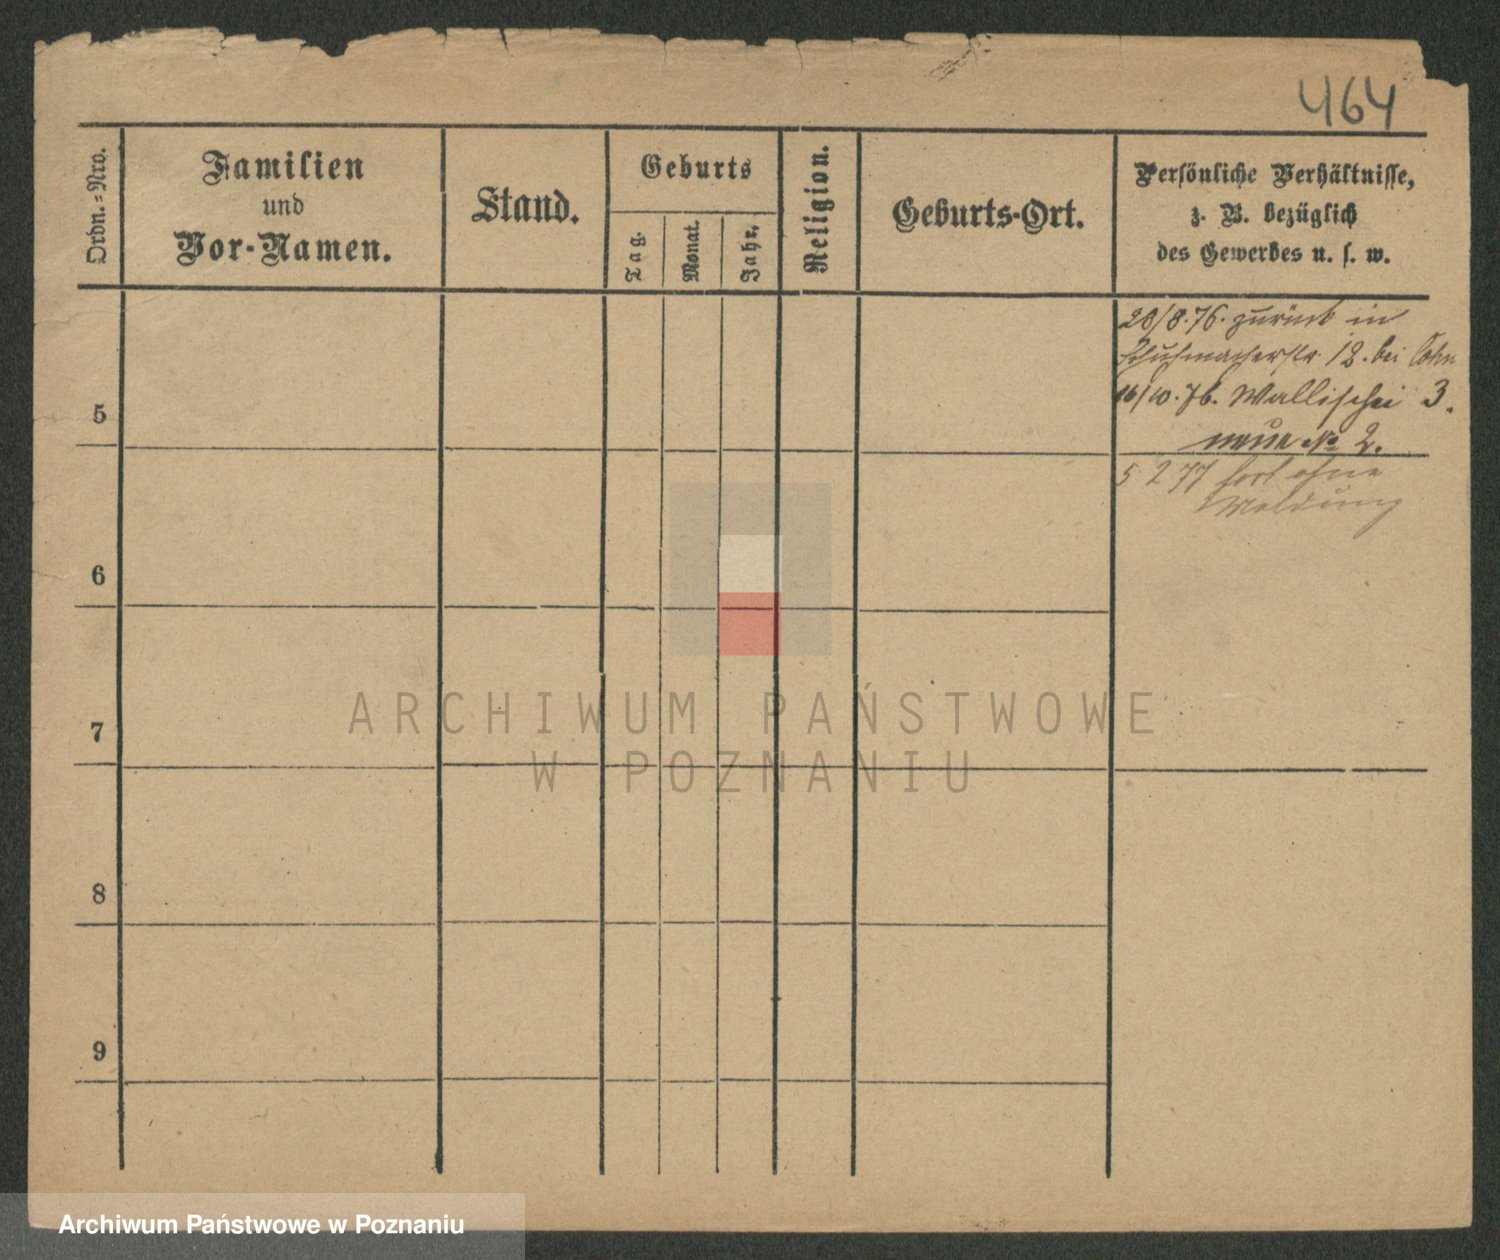 464
Ordn.=Nro.
Familien
und
Vor-Namen.
Stand.
Geburts
Tag.
Monat.
Jahr.
Religion.
Geburts-Ort.
Persönliche Verhältnisse,
z. B. bezüglich
des Gewerbes u. s. w.
28/8.76. zurück in
Schuhmacherstr. 12. bei Cohn
16/10.76. Wallischei 3.
neue No 2.
5
5 2 77 fort ohne
Meldung
6
7
8
9
ARCHIWUM PAŃSTWOWE
W POZNANIU
Archiwum Państwowe w Poznaniu